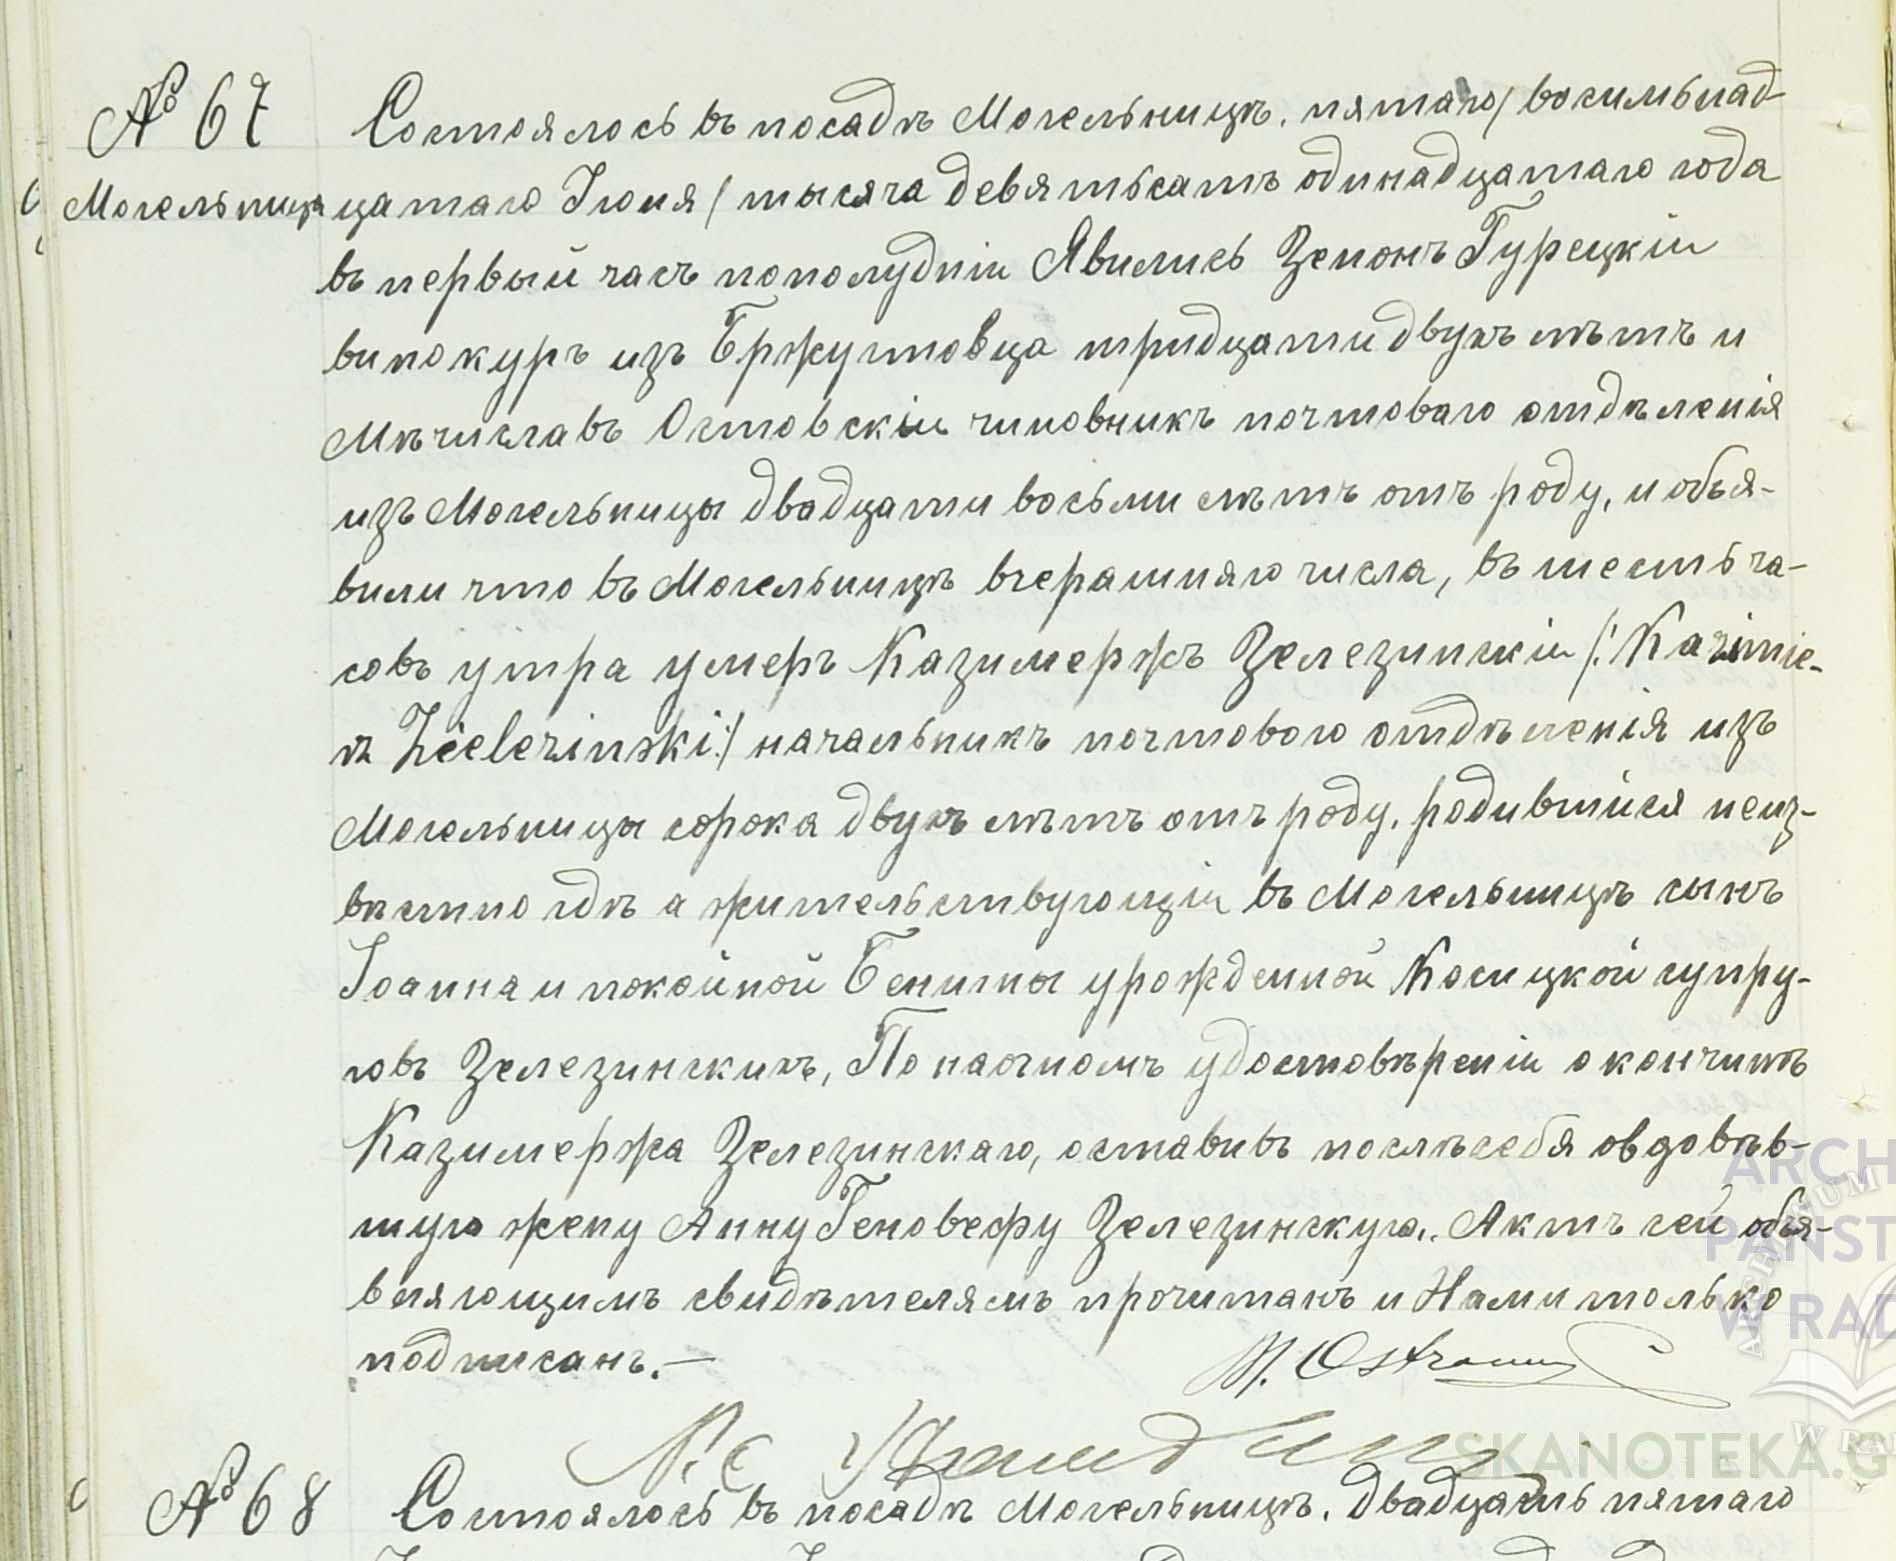 № 67
Могельница
Состоялось въ посадѣ Могельницѣ, пятаго/восемьнад-
цатаго Іюня/тысяча девятьсатъ одинадцатаго года
въ первый часъ пополудніи Явились Зенонъ Гурецкіи
винокуръ изъ Бржутовца тридцати двухъ лѣтъ и
Мѣчиславъ Остовскіи чиновникъ почтоваго отдѣленія
изъ Могельницы двадцати восьми лѣтъ отъ роду, и объя-
вили что въ Могельницѣ вчерашняго числа, въ шесть ча-
совъ утра умеръ Казимержъ Зелезинскіи /:Kazimie-
rz Zielezinski:/ начальникъ почтового отдѣленія изъ
Могельницы сорока двухъ лѣтъ отъ роду, родившійся неиз-
вѣстно гдѣ а жительствующіи въ Могельницѣ сынъ
Іоанна и покойной Бениты урожденной Косицкой супру-
говъ Зелезинскихъ, По наочномъ удостовѣреніи о кончинѣ
Казимержа Зелезинскаго, оставивъ послѣ себя овдовѣв-
шую жену Анну Геновефу Зелезинскую. Актъ сей объя-
вляющимъ свидѣтелямъ прочитанъ и Нами только
подписанъ.—
M. Ostrowski
№ 68
Состоялось въ посадѣ Могельницѣ, двадцать пятаго
ARCH
PAŃST
W RAD
SKANOTEKA.G